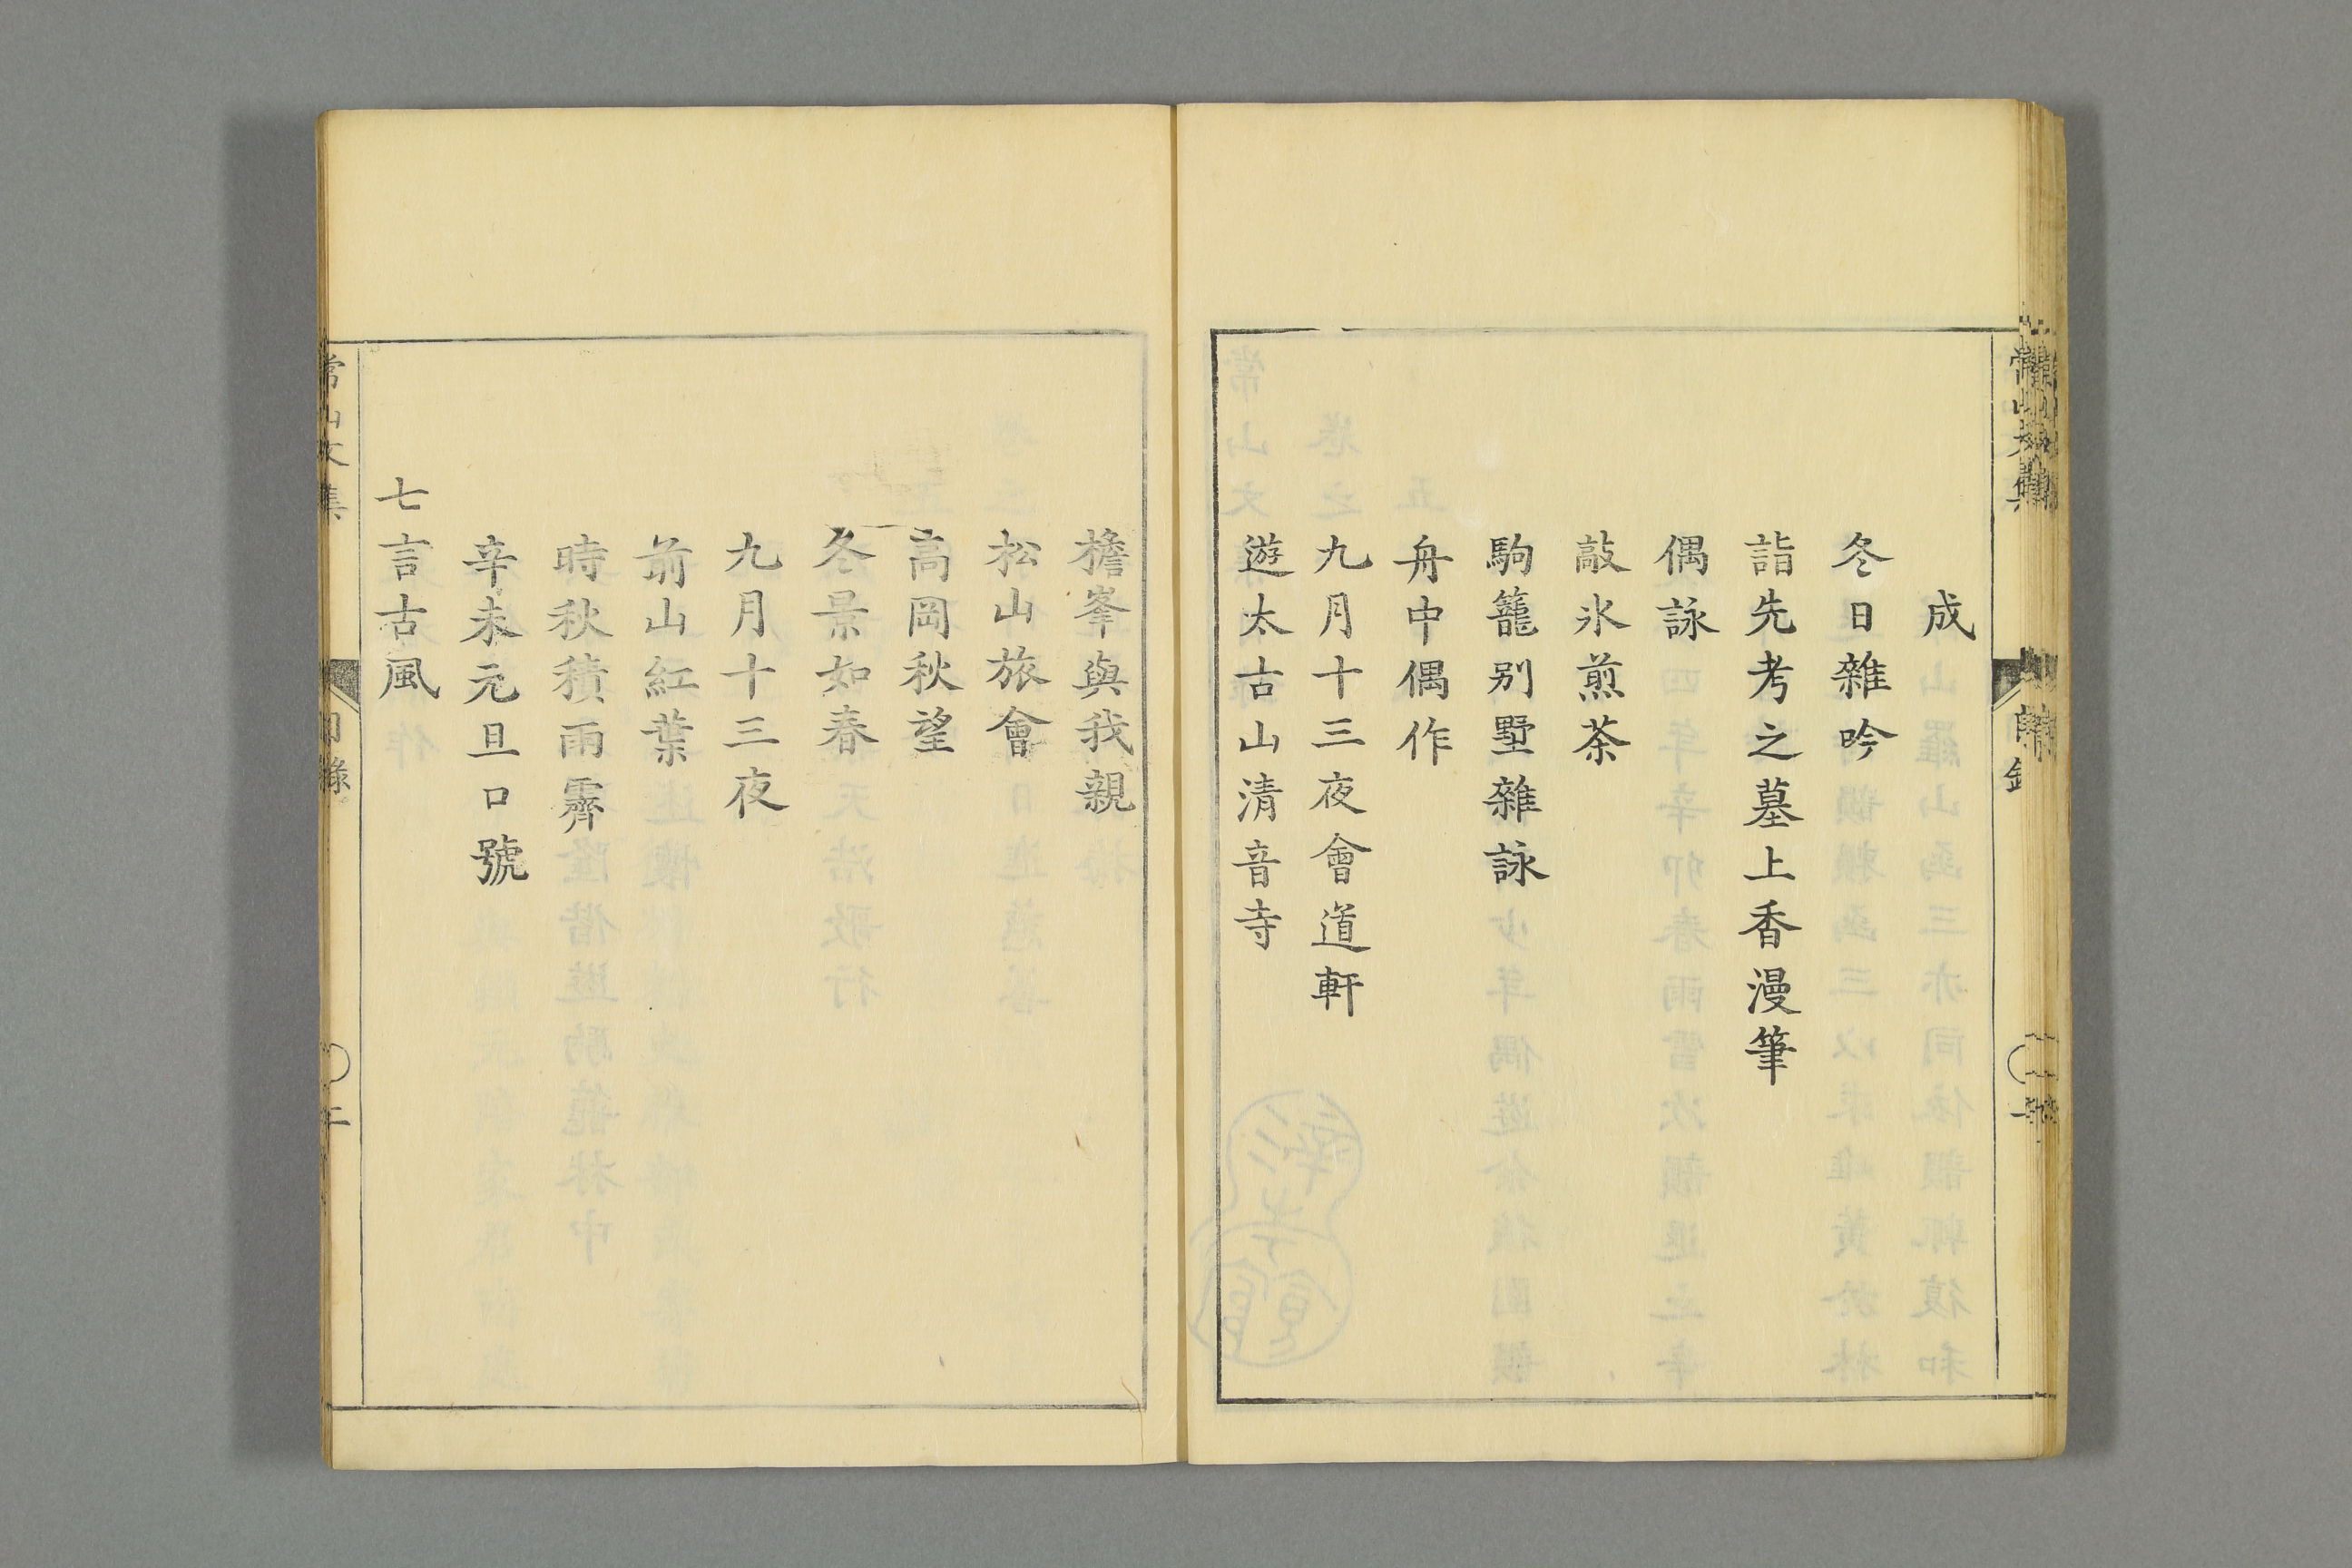 成
冬日雜吟
詣先考之墓上香漫筆
偶詠
敲氷煎茶
駒籠别墅雜詠
舟中偶作
九月十三夜會道軒
遊太古山清音寺
檐峯與我親
松山旅會
高岡秋望
冬景如春
九月十三夜
前山紅葉
時秋積雨霽
辛未元旦口號
七言古風
常山文集
目錄